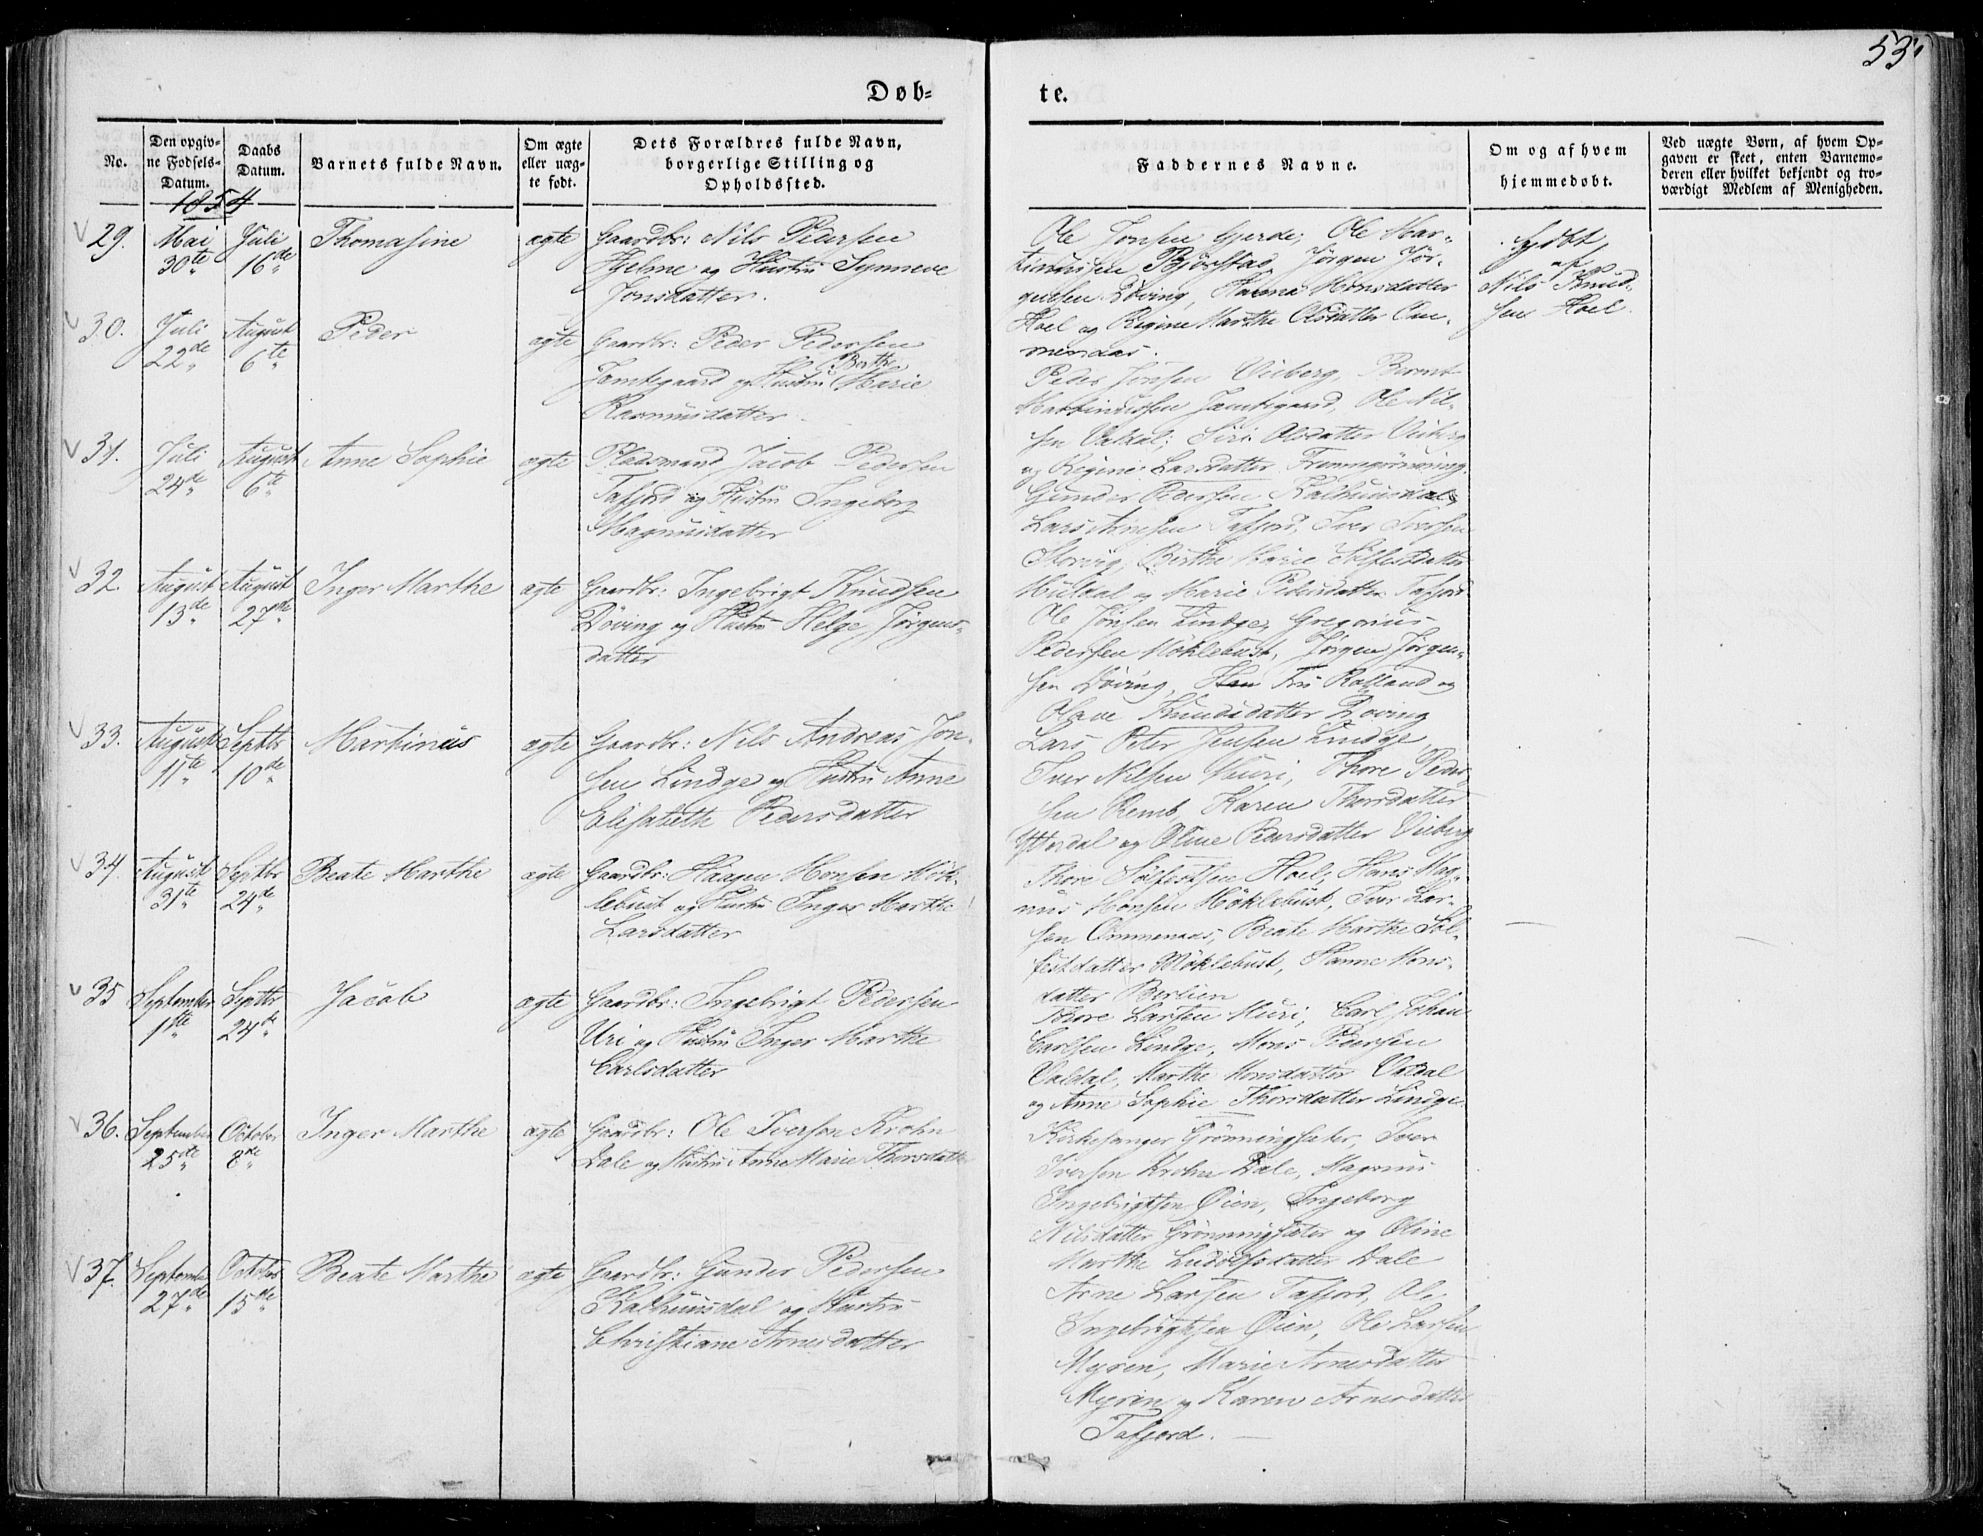 53.
Døb-
te.
No.
Den opgiv-
ne Fødsels-
Datum.
Daabs
Datum.
Barnets fulde Navn.
Om ægte
eller uæg-
te født.
Dets Forældres fulde Navn,
borgerlige Stilling og
Opholdssted.
Faddernes Navne.
Om og af hvem
hjemmedøbt.
Ved uægte Børn, af hvem Op-
gaven er skeet, enten Barnemo-
deren eller hvilket bekjendt og tro-
værdigt Medlem af Menigheden.
1854
29.
Mai
30te
Juli
16de
Thomasine
ægte
Gaardbr: Nils Pedersen
Hjelme og Hustru Synneve
Jonsdatter.
Ole Jonsen Gjerde, Ole Mar-
tinussen Bjørstad, Jørgen Jør-
gensen Døving, Hanna Monsdatter
Hoel og Regine Marthe Olsdatter Om-
menaas.
hjdøbt
af
Nils Knud-
sen Hoel.
30.
Juli
22de
August
6te
Peder
ægte
Gaardbr: Peder Pedersen
Jamtegaard og Hustru Berthe Marie
Rasmusdatter.
Peder Jonsen Viberg, Bernt
Martinussen Jamtegaard, Ole Nil-
sen Valdal, Siri Olsdatter Viberg
og Regine Larsdatter
31.
Juli
24de
August
6te
Anne Sophie
ægte
Pladsmand Jacob Pedersen
Tafjord og Hustru Ingeborg
Magnusdatter
Gunder Pedersen Kalhuusdal,
Lars Arnesen Tafjord, Iver Iversen
Storvig, Berthe Marie Sølfestdatter
Muldal og Marie Pedersdatter Tafjord
32.
August
13de
August
27de
Inger Marthe
ægte
Gaardbr: Ingebrigt Knudsen
Døving og Hustru Helge Jørgens-
datter
Ole Jonsen Lindge, Gregorius
Pedersen Møklebust, Jørgen Jørgen-
sen Døving, Fru Kalland og
Olave Knudsdatter Døving
33.
August
11te
Septbr
10de
Martinus
ægte
Gaardbr: Nils Andreas Jon-
sen Lindge og Hustru Anne
Elisabeth Pedersdatter
Lars Peter Jensen Lindge
Iver Nilsen Muri, Thore Peder-
sen Remb, Karen Thorsdatter
og Oline Pedersdatter Viberg
34.
August
31te
Septbr
24de
Beate Marthe
ægte
Gaardbr: Haagen Monsen Møk-
lebust og Hustru Inger Marthe
Larsdatter
Thore Sølfestsen Hoel, Hans Mag-
nus Monsen Møklebust, Iver Lar-
sen Ommenaas, Beate Marthe Søl-
festdatter Møklebust, Hanne Mons-
datter Berlien
35
September
1ste
Septbr
24de
Jacob
ægte
Gaardbr: Ingebrigt Pedersen
Uri og Hustru Inger Marthe
Carlsdatter
Thore Larsen Muri, Carl Johan
Carlsen Lindge, Mons Pedersen
Valdal, Marthe Monsdatter Valdal
og Anne Sophie Thorsdatter Lindge.
36.
September
25de
October
8de
Inger Marthe
ægte
Gaardbr: Ole Iversen Krohn
Dale og Hustru Anne Marie Thorsdatter
Kirkesanger Grønningsæter, Iver
Iversen Krohn Dale, Magnus
Ingebrigtsen Øien, Ingeborg
Nilsdatter Grønningsæter og Oline
Marthe Ludolfsdatter Dale
37.
September
27de
October
15de
Beate Marthe
ægte
Gaardbr: Gunder Pedersen
Kalhuusdal og Hustru
Christiane Arnesdatter
Arne Larsen Tafjord, Ole
Ingebrigtsen Øien, Ole Larsen
Myren, Marie Arnesdatter
Myren og Karen Arnesdatter
Tafjord.